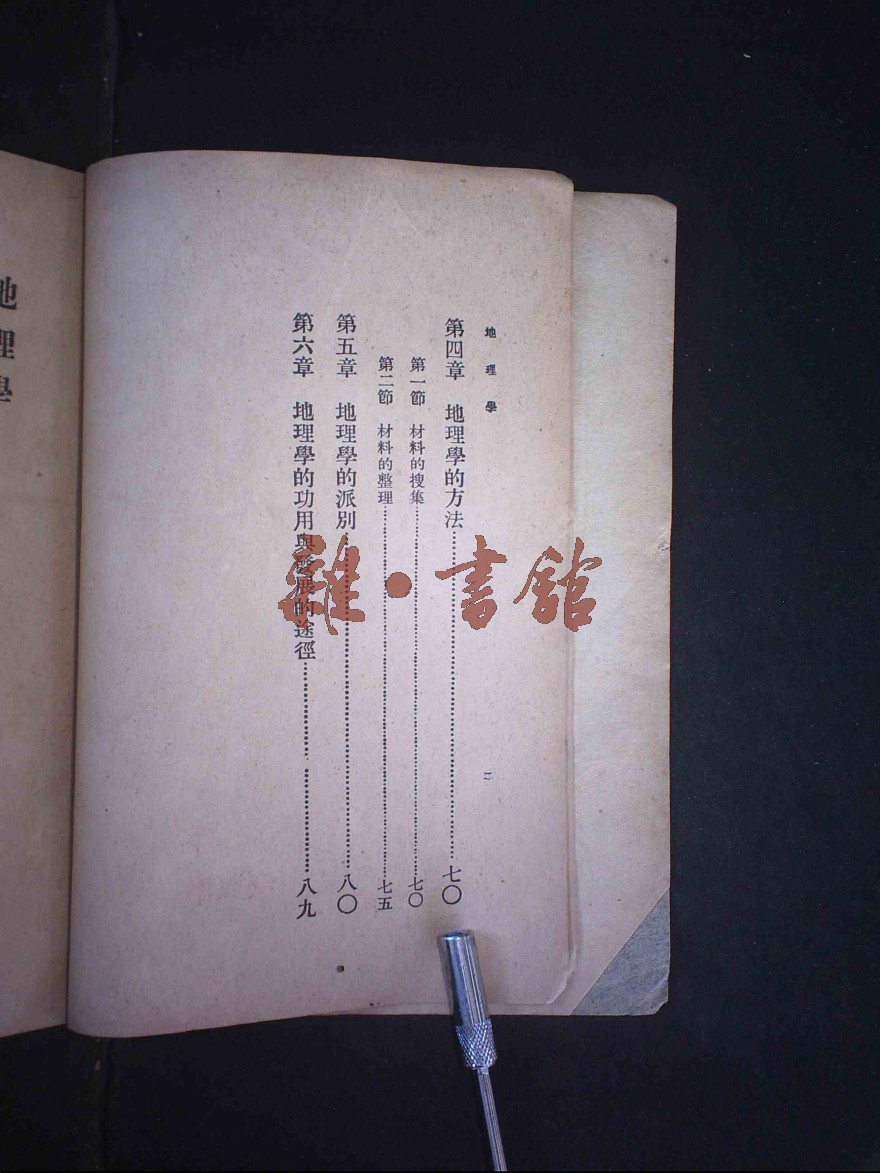 地理學
二
第四章 地理學的方法……七〇
第一節 材料的搜集……七〇
第二節 材料的整理……七五
第五章 地理學的派別……八〇
第六章 地理學的功用與發展的途徑……八九
地理學
雜·書館